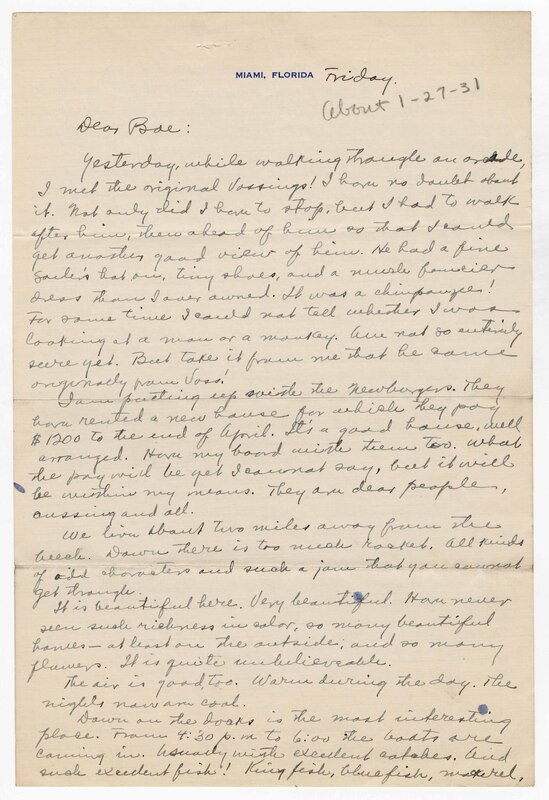 MIAMI, FLORIDA Friday.
About 1-27-31
Dear Boe:
Yesterday, while walking through an arcade,
I met the original Vossings! I have no doubt about
it. Not only did I have to stop, but I had to walk
after him, then ahead of him so that I could
get another good view of him. He had a fine
Sailor's hat on, tiny shoes, and a much fancier
dress than I ever owned. It was a chimpanzee!
For some time I could not tell whether I was
looking at a man or a monkey. Am not so entirely
sure yet. But take it from me that he came
originally from Voss!
I am putting up with the Newburgers. They
have rented a new house for which they pay
$1200 to the end of April. It's a good house, well
arranged. Have my board with them too. What
the pay will be yet I cannot say, but it will
be within my means. They are dear people,
cussing and all.
We live about two miles away from the
beech. Down there is too much racket. All kinds
of odd characters and such a jam that you cannot
get through.
It is beautiful here. Very beautiful. Have never
seen such richness in color, so many beautiful
homes - at least on the outside, and so many
flowers. It is quite unbelieveable.
The air is good, too. Warm during the day. The
nights now are cool.
Down on the docks is the most interesting
place. From 4:30 p.m to 6:00 the boats are
coming in. Usually with excedent catches. And
such excedent fish! King fish, bluefish,